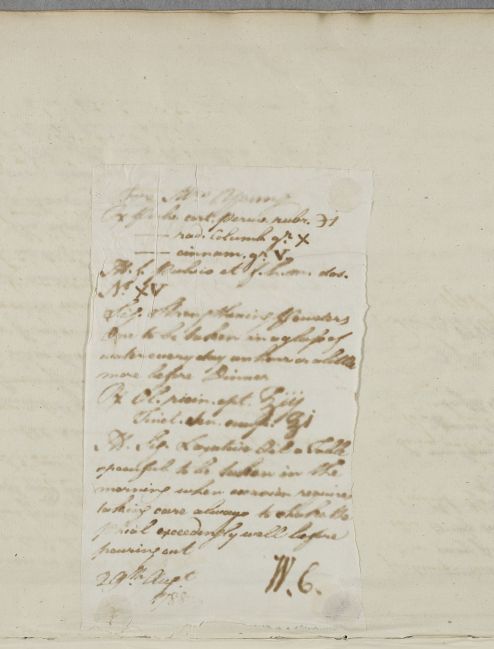 For Mrs Young
Rx Pulv. cort. peruv. rubr. ʒi
—— rad. Columb. gr. X
—— cinnam. gr. V
M. f. Pulvis et f. h. m. dos.
No. XV
Sig. Strengthening Powders
One to be taken in a glass of
water every day an hour or a little
more before Dinner
Rx Ol. ricin. opt.
Tinct. Sen. comp. ʒi
M. Sig. Laxative Oil a Table
spoonful to be taken in the
morning when occasion requires
taking care always to shake the
phial exceedingly well before
pouring out
29th Augt
W. C.